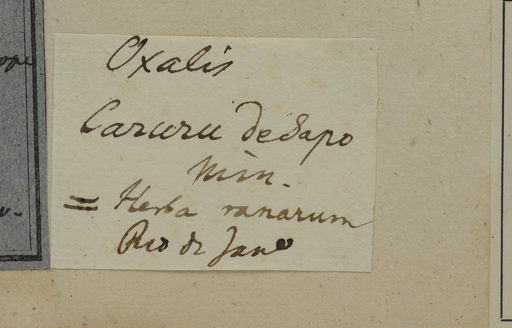 Oxalis
Caruru de Sapo
Min.
= Herba ranarum
Rio de Jano